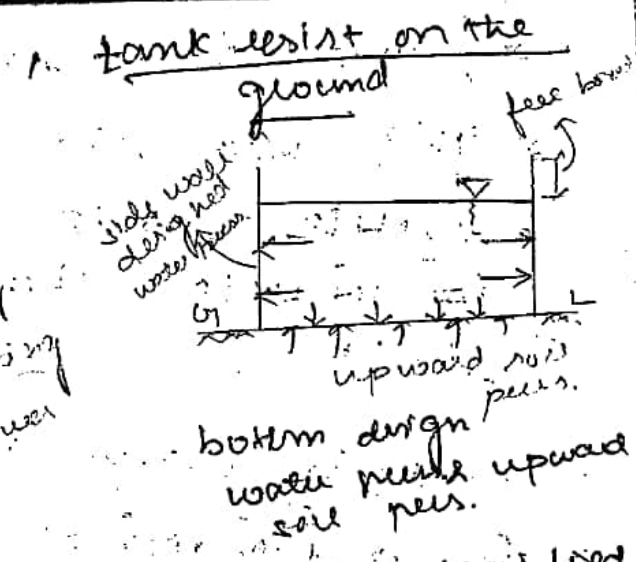 1. tank resist on the
ground
free board
side wall
designed
water press.
G
L
upward soil
press.
bottom design
water press upward
soil pres.